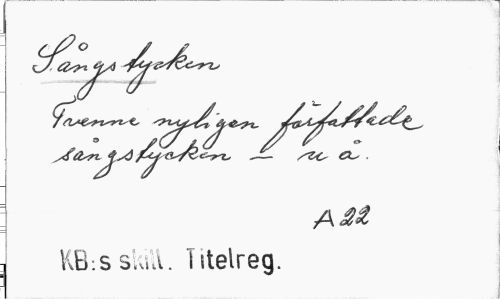 Sångstycken
Tvenne nyligen författade
sångstycken – u å.
A 22
KB:s skill. Titelreg.